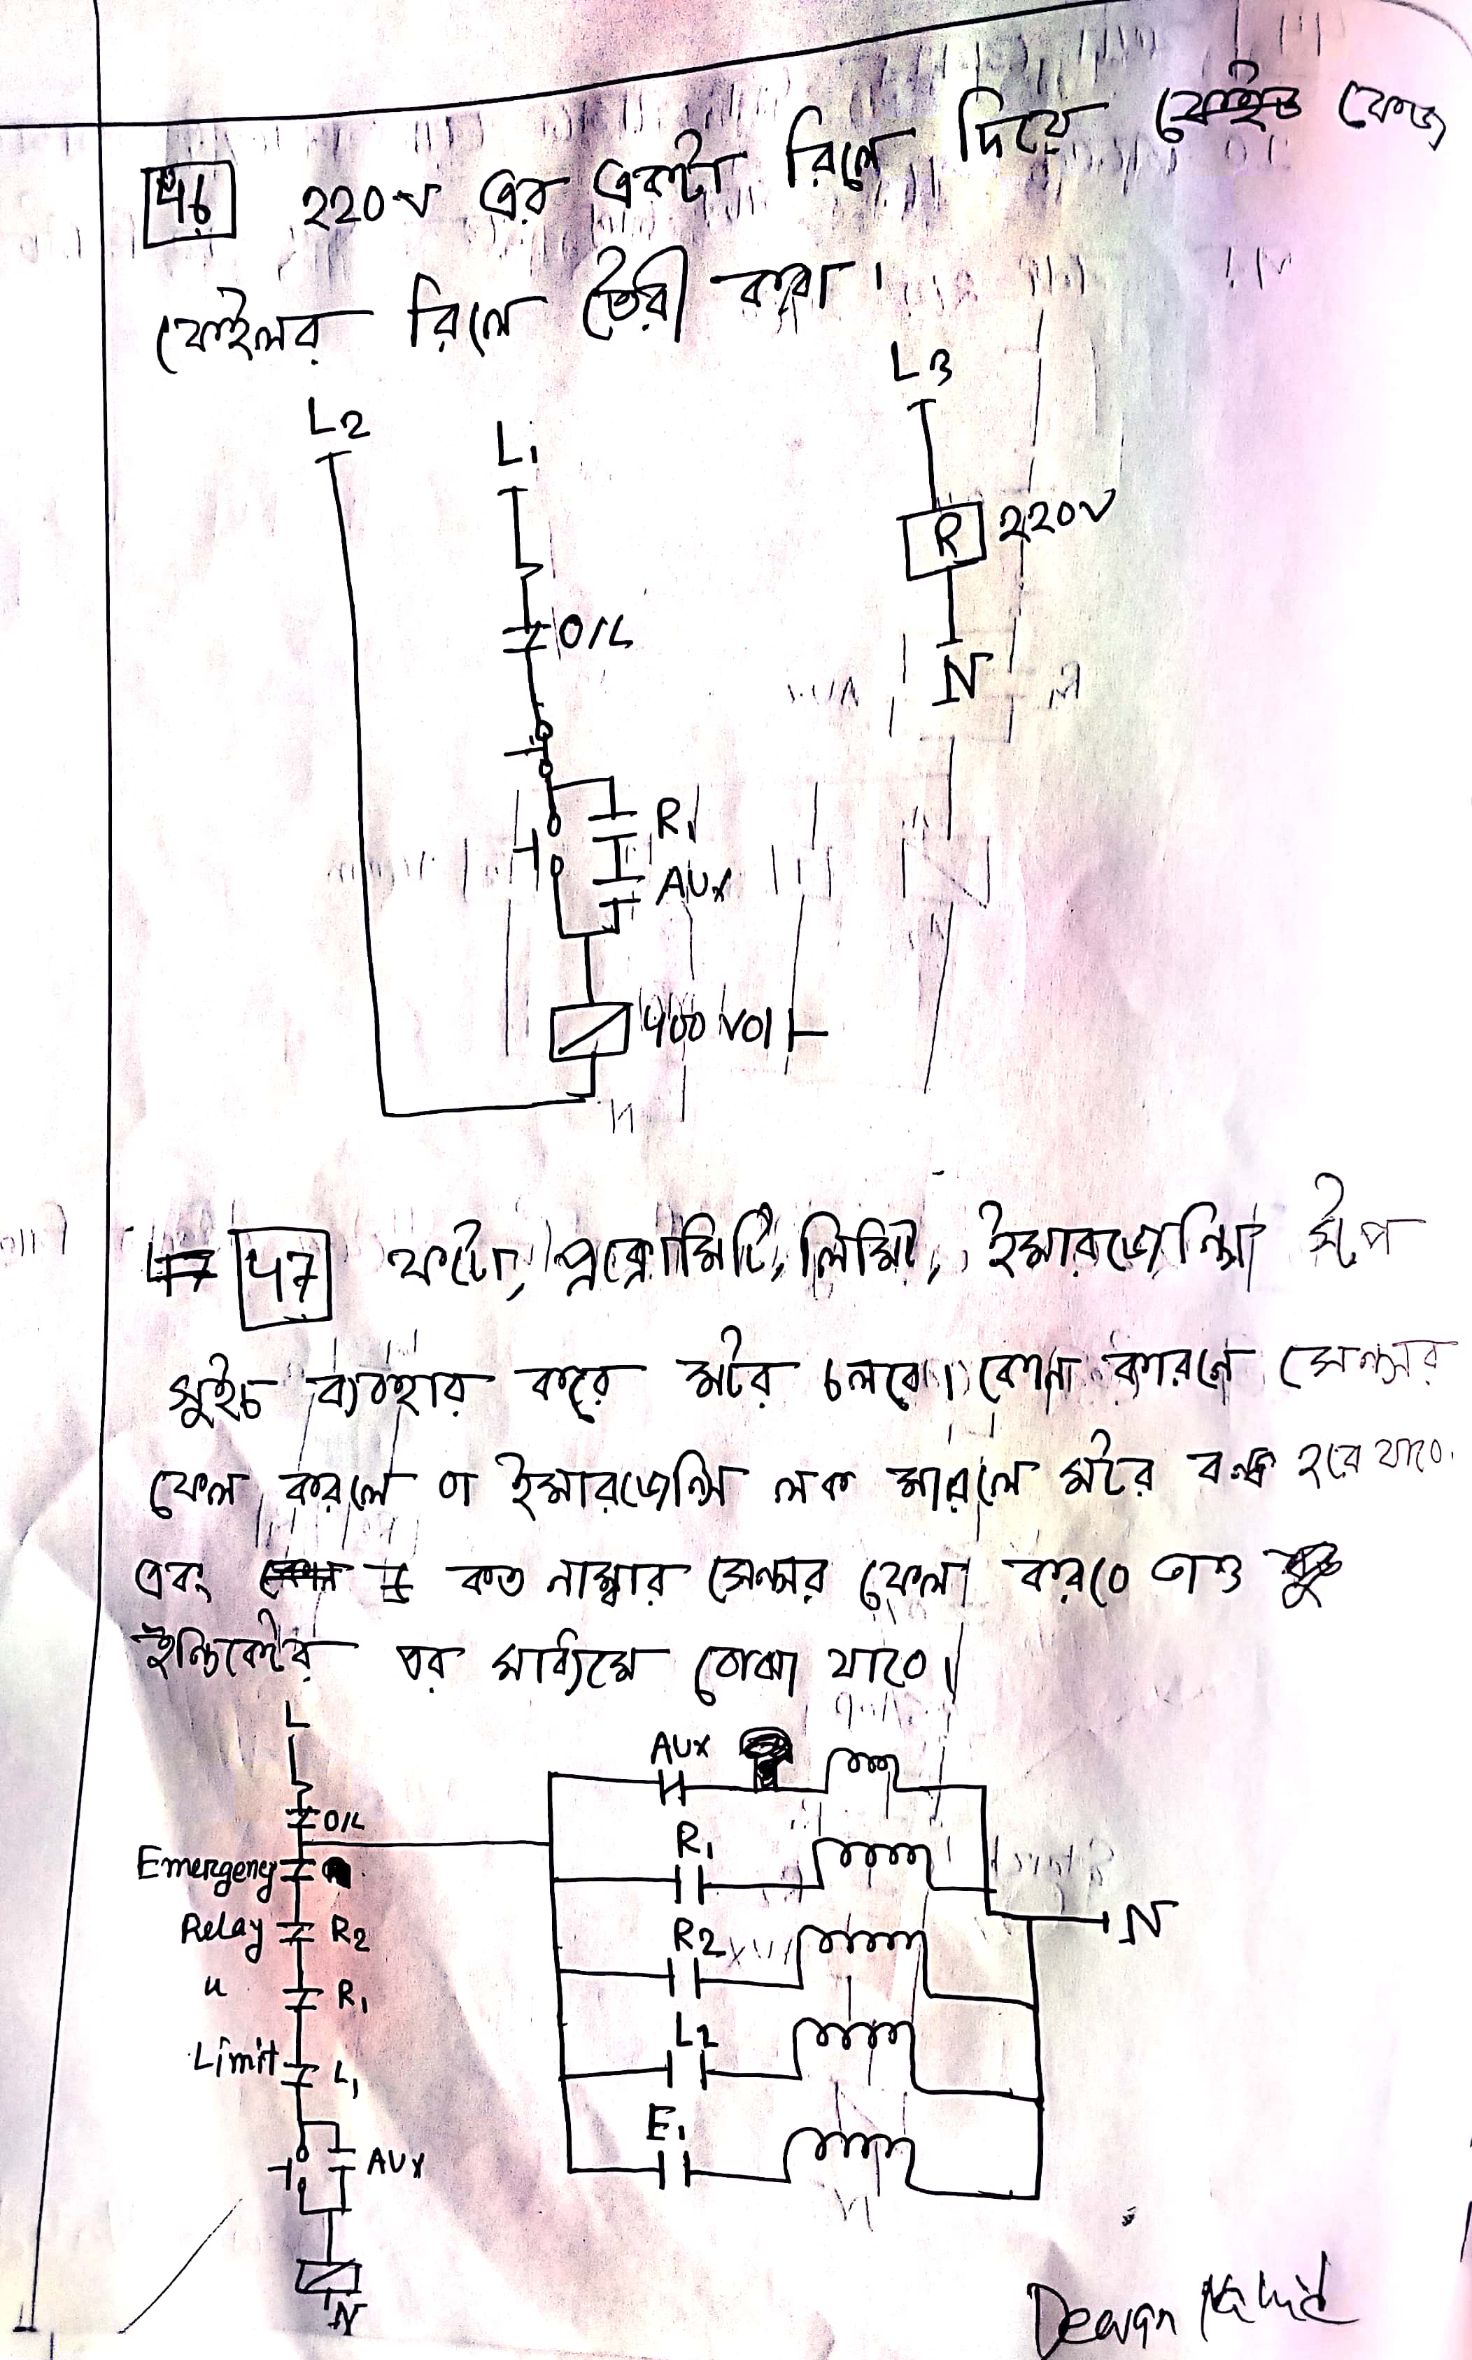 46 220V এর একটা রিলে দিয়ে ফেজ
ফেইলর রিলে তৈরী করা।
L3
L2
L1
R 220V
O/L
N
R1
AUX
400 VOlt
47 ফটো, প্রক্সোমিটি, লিমিট, ইমারজেন্সি স্টপ
সুইচ ব্যবহার করে মটর চলবে। কোনা কারনে সেন্সর
ফেল করলে বা ইমারজেন্সি লক মারলে মটর বন্ধ হবে যাবে।
এবং কত নাম্বার সেন্সর ফেল করবে তাও
ইন্ডিকেটর এর মাধ্যমে বোঝা যাবে।
L
AUX
O/L
R1
Emergency
Relay R2
R2
N
u R1
L2
Limit L1
E1
AUX
N
Dewan Nahid